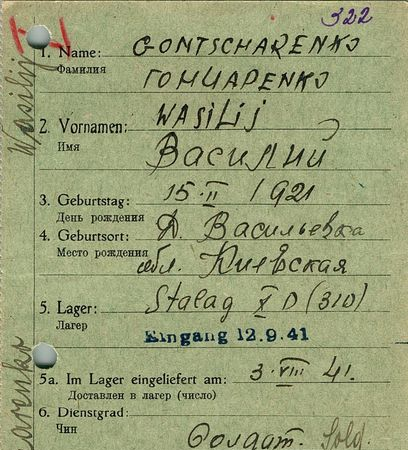 322
1. Name: GONTSCHARENKO
Фамилия ГОНЧАРЕНКО
2. Vornamen: WASILIJ
Имя Василий
3. Geburtstag: 15·II 1921
День рождения
4. Geburtsort: Д. Васильевка
Место рождения обл. Киевская
5. Lager: Stalag X D (310)
Лагер
Eingang 12.9.41
5a. Im Lager eingeliefert am: 3·VIII 41.
Доставлен в лагер (число)
6. Dienstgrad:
Чин Солдат. Sold.
Wasilij
arenko